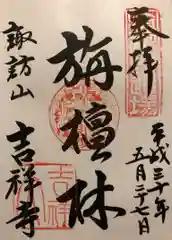 奉拝
平成三十年
五月二十七日
旃檀林
諏訪山
吉祥寺